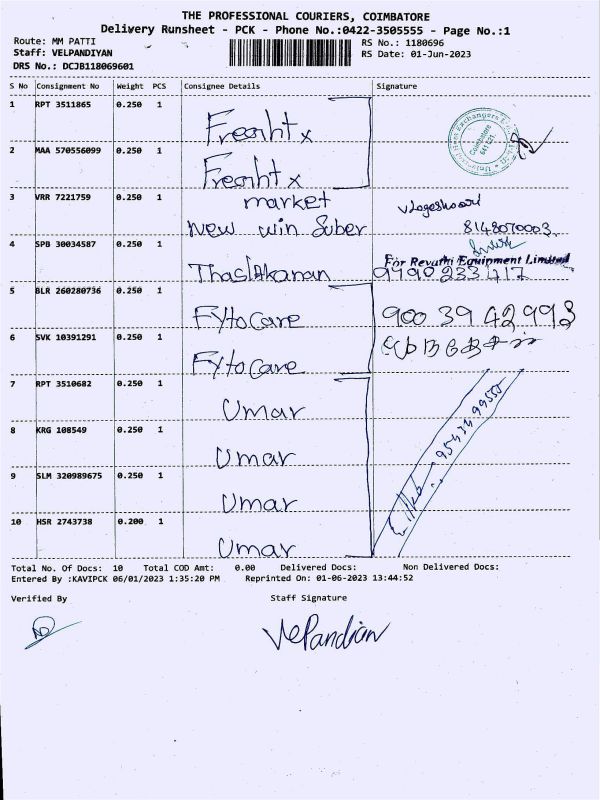 THE PROFESSIONAL COURIERS, COIMBATORE
Delivery Runsheet - PCK - Phone No.:0422-3505555 - Page No.:1
Route: MM PATTI
RS No.: 1180696
Staff: VELPANDIYAN
RS Date: 01-Jun-2023
DRS No.: DCJB118069601
S No Consignment No Weight PCS Consignee Details Signature
1 RPT 3511865 0.250 1
Freaht x
2 MAA 570556099 0.250 1
Freaht x
3 VRR 7221759 0.250 1 market
New win Suber 8148070003
4 SPB 30034587 0.250 1
For Revathi Equipment Limited
Thaslakanan
5 BLR 260280736 0.250 1
FytoCare 900 39 42993
6 SVK 10391291 0.250 1
FytoCare
7 RPT 3510682 0.250 1
Umar
8 KRG 108549 0.250 1
Umar
9 SLM 320989675 0.250 1
Umar
10 HSR 2743738 0.200 1
Umar
Total No. Of Docs: 10 Total COD Amt: 0.00 Delivered Docs: Non Delivered Docs:
Entered By :KAVIPCK 06/01/2023 1:35:20 PM Reprinted On: 01-06-2023 13:44:52
Verified By Staff Signature
VelPandian